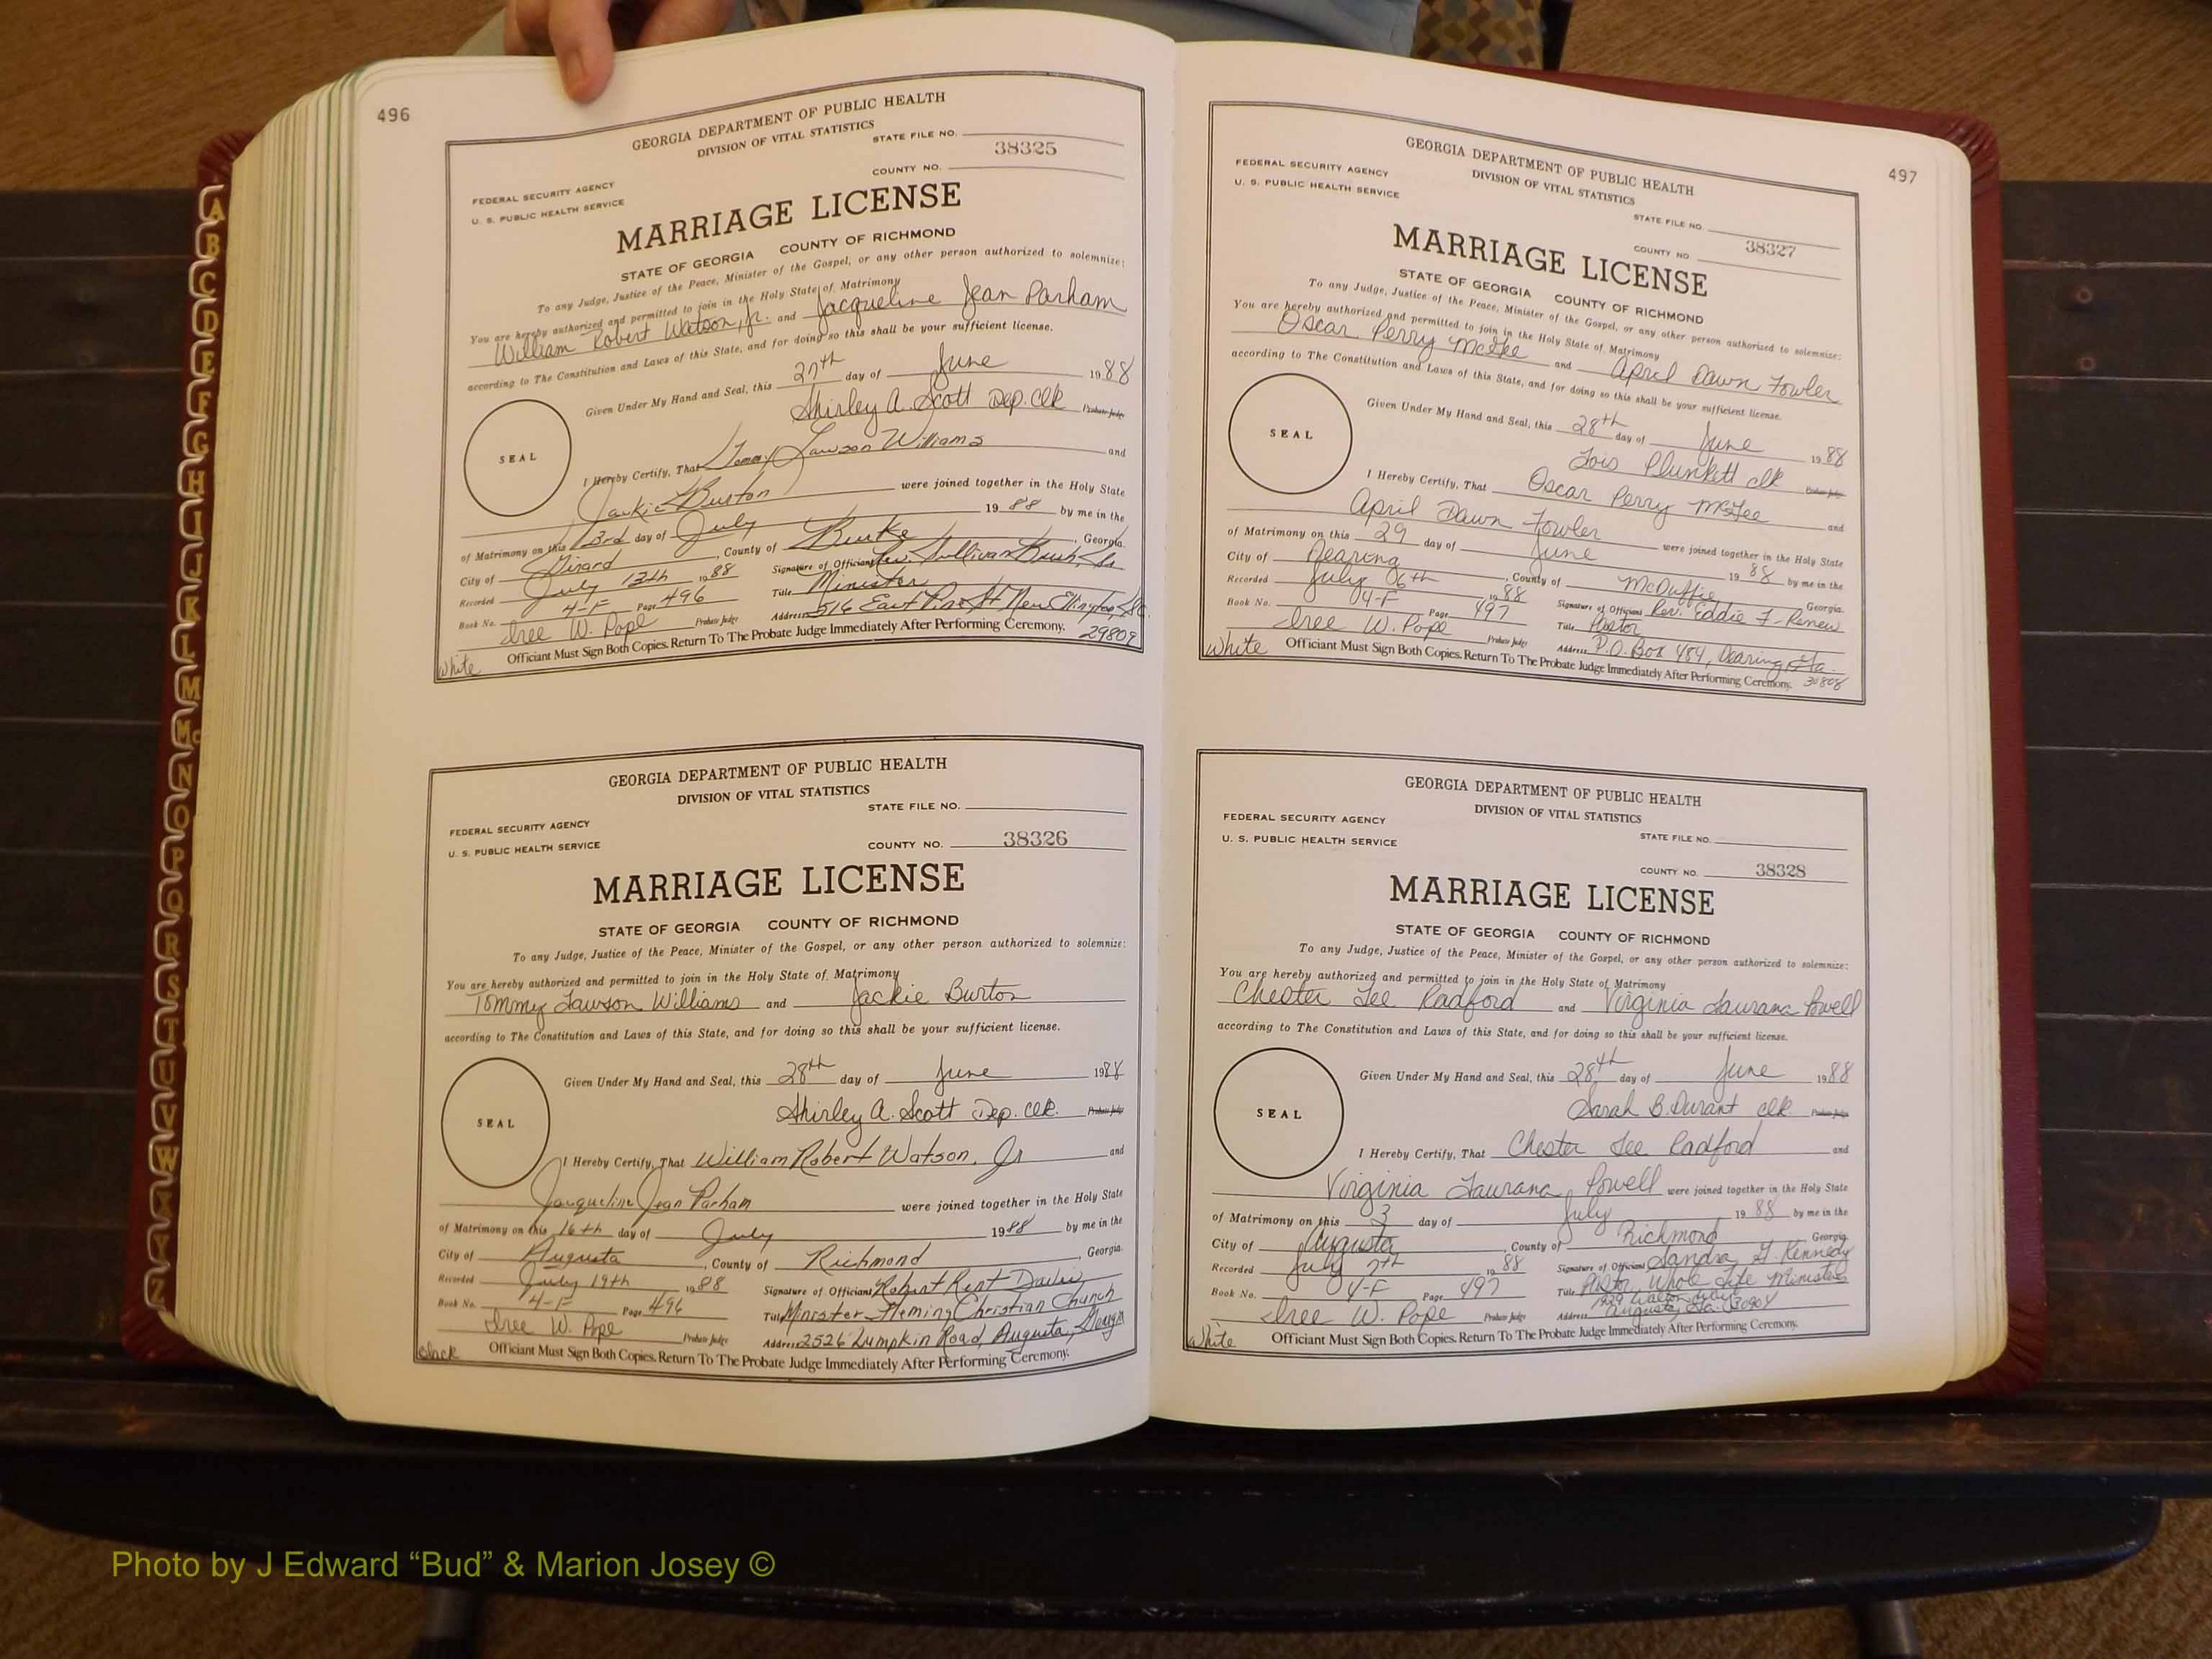 496
GEORGIA DEPARTMENT OF PUBLIC HEALTH
DIVISION OF VITAL STATISTICS
STATE FILE NO.
38325
COUNTY NO.
FEDERAL SECURITY AGENCY
U. S. PUBLIC HEALTH SERVICE
MARRIAGE LICENSE
STATE OF GEORGIA COUNTY OF RICHMOND
To any Judge, Justice of the Peace, Minister of the Gospel, or any other person authorized to solemnize:
You are hereby authorized and permitted to join in the Holy State of Matrimony
William Robert Watson, Jr. and Jacqueline Jean Parham
according to The Constitution and Laws of this State, and for doing so this shall be your sufficient license.
Given Under My Hand and Seal, this 27th day of June 1988
Shirley A. Scott Dep. Clk Probate Judge
SEAL
I Hereby Certify, That Tommy Lawson Williams and
Jackie Burton were joined together in the Holy State
of Matrimony on this 3rd day of July 1988 by me in the
City of Girard, County of Burke, Georgia.
Recorded July 13th 1988 Signature of Official Sullivan Bush, Sr.
Book No. 4-F Page 496 Title Minister
Iree W. Pope Probate Judge Address 516 East Pine St New Ellington, SC.
Officiant Must Sign Both Copies. Return To The Probate Judge Immediately After Performing Ceremony. 29809
White
GEORGIA DEPARTMENT OF PUBLIC HEALTH
DIVISION OF VITAL STATISTICS
STATE FILE NO.
FEDERAL SECURITY AGENCY
U. S. PUBLIC HEALTH SERVICE
COUNTY NO. 38326
MARRIAGE LICENSE
STATE OF GEORGIA COUNTY OF RICHMOND
To any Judge, Justice of the Peace, Minister of the Gospel, or any other person authorized to solemnize:
You are hereby authorized and permitted to join in the Holy State of Matrimony
Tommy Lawson Williams and Jackie Burton
according to The Constitution and Laws of this State, and for doing so this shall be your sufficient license.
Given Under My Hand and Seal, this 28th day of June 1988
Shirley A. Scott Dep. Clk. Probate Judge
SEAL
I Hereby Certify, That William Robert Watson, Jr and
Jacqueline Jean Parham were joined together in the Holy State
of Matrimony on this 16th day of July 1988 by me in the
City of Augusta, County of Richmond, Georgia.
Recorded July 19th 1988 Signature of Official Robert Kent Davis
Book No. 4-F Page 496 Title Minister Fleming Christian Church
Iree W. Pope Probate Judge Address 2526 Lumpkin Road, Augusta, Georgia
Officiant Must Sign Both Copies. Return To The Probate Judge Immediately After Performing Ceremony.
black
497
GEORGIA DEPARTMENT OF PUBLIC HEALTH
DIVISION OF VITAL STATISTICS
FEDERAL SECURITY AGENCY
U. S. PUBLIC HEALTH SERVICE
STATE FILE NO.
COUNTY NO. 38327
MARRIAGE LICENSE
STATE OF GEORGIA COUNTY OF RICHMOND
To any Judge, Justice of the Peace, Minister of the Gospel, or any other person authorized to solemnize:
You are hereby authorized and permitted to join in the Holy State of Matrimony
Oscar Perry McGee and April Dawn Fowler
according to The Constitution and Laws of this State, and for doing so this shall be your sufficient license.
Given Under My Hand and Seal, this 28th day of June 1988
Lois Plunkett clk Probate Judge
SEAL
I Hereby Certify, That Oscar Perry McGee and
April Dawn Fowler were joined together in the Holy State
of Matrimony on this 29 day of June 1988 by me in the
City of Dearing, County of McDuffie Georgia.
Recorded July 06th 1988 Signature of Official Rev. Eddie F. Renew
Book No. 4-F Page 497 Title Pastor
Iree W. Pope Probate Judge Address P.O. Box 484, Dearing, Ga.
Officiant Must Sign Both Copies. Return To The Probate Judge Immediately After Performing Ceremony. 30808
White
GEORGIA DEPARTMENT OF PUBLIC HEALTH
DIVISION OF VITAL STATISTICS
FEDERAL SECURITY AGENCY
U. S. PUBLIC HEALTH SERVICE
STATE FILE NO.
COUNTY NO. 38328
MARRIAGE LICENSE
STATE OF GEORGIA COUNTY OF RICHMOND
To any Judge, Justice of the Peace, Minister of the Gospel, or any other person authorized to solemnize:
You are hereby authorized and permitted to join in the Holy State of Matrimony
Chester Lee Radford and Virginia Laurana Powell
according to The Constitution and Laws of this State, and for doing so this shall be your sufficient license.
Given Under My Hand and Seal, this 28th day of June 1988
Sarah B. Durant clk Probate Judge
SEAL
I Hereby Certify, That Chester Lee Radford and
Virginia Laurana Powell were joined together in the Holy State
of Matrimony on this 3 day of July 1988 by me in the
City of Augusta, County of Richmond Georgia.
Recorded July 7th 1988 Signature of Official Sandra G. Kennedy
Book No. 4-F Page 497 Title Pastor Whole Life Ministries
Iree W. Pope Probate Judge Address 1929 Walton Augusta, Ga. 30904
Officiant Must Sign Both Copies. Return To The Probate Judge Immediately After Performing Ceremony.
White
A
B
C
D
E
F
G
H
I
J
K
L
M
Mc
N
O
P
Q
R
S
T
U
V
W
X
Y
Z
Photo by J Edward “Bud” & Marion Josey ©